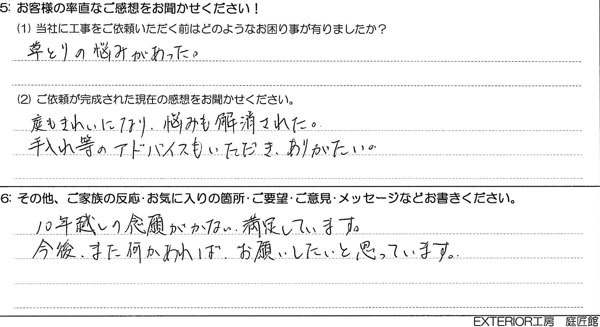 5: お客様の率直なご感想をお聞かせください！
(1) 当社に工事をご依頼いただく前はどのようなお困り事が有りましたか？
草とりの悩みがあった。
(2) ご依頼が完成された現在の感想をお聞かせください。
庭もきれいになり、悩みも解消された。
手入れ等のアドバイスもいただき、ありがたい。
6: その他、ご家族の反応・お気に入りの箇所・ご要望・ご意見・メッセージなどお書きください。
10年越しの念願がかない、満足しています。
今後、また何かあれば、お願いしたいと思っています。
EXTERIOR工房 庭匠館